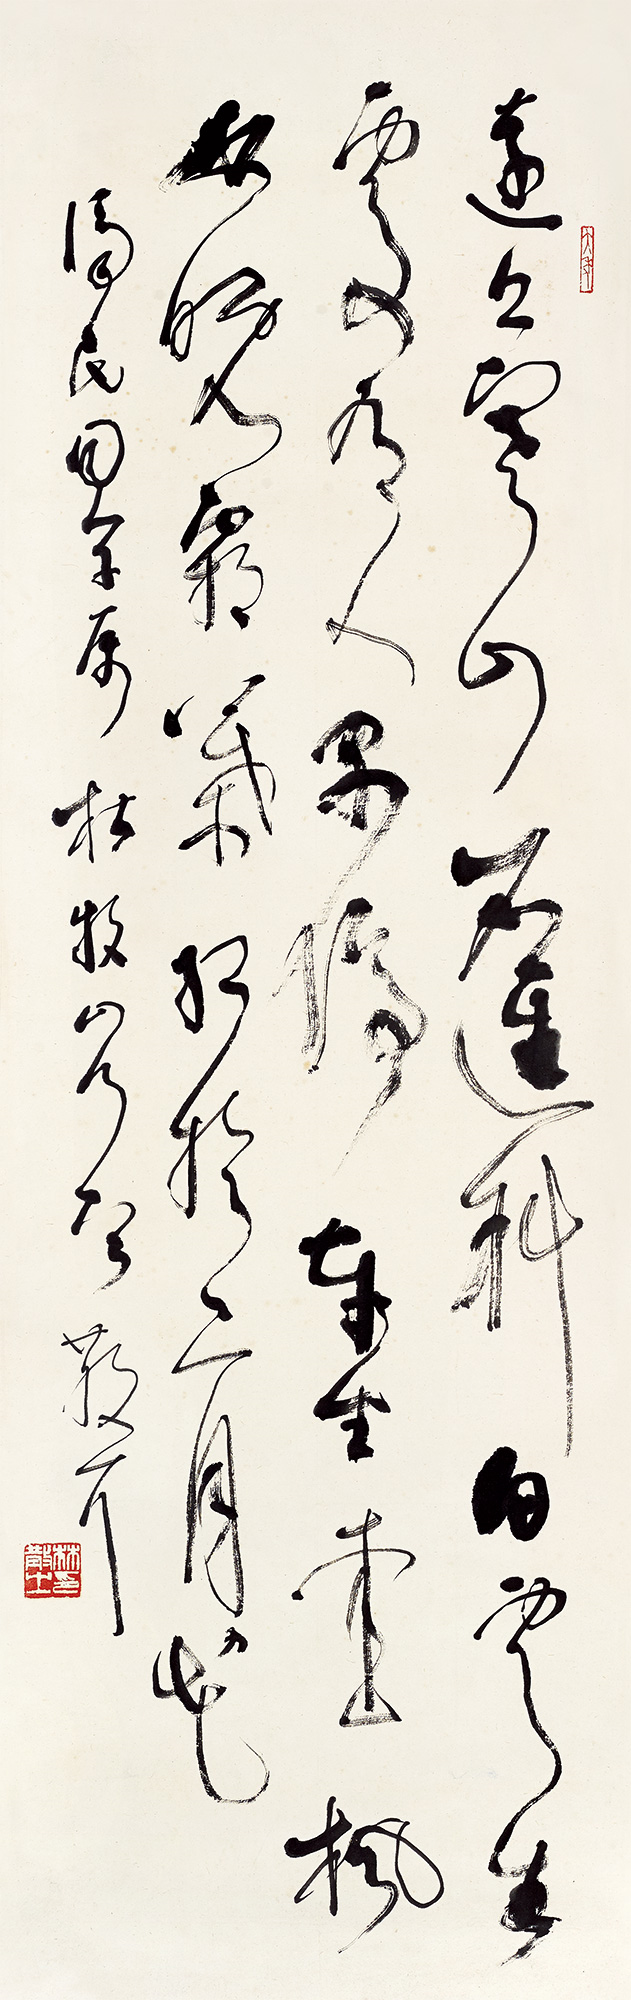 大年
遠上寒山石迳斜白雲生
處有人家停車坐愛楓
林晚霜葉紅於二月花
濟民同學屬杜牧山行 散耳
林散之印